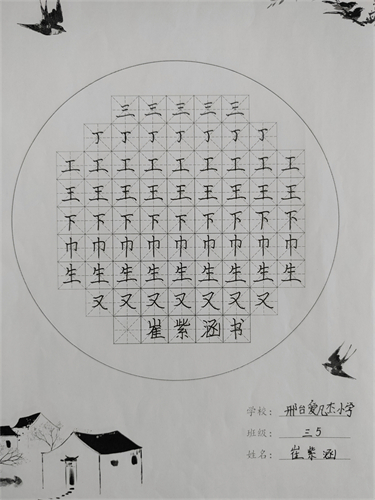 三三三三三
丁丁丁丁丁丁丁
工工工工工工工工工
王王王王王王王王王
下下下下下下下下下
巾巾巾巾巾巾巾巾巾
生生生生生生生生生
又又又又又又又
崔紫涵书
学校：邢台爱凡杰小学
班级：三5
姓名：崔紫涵